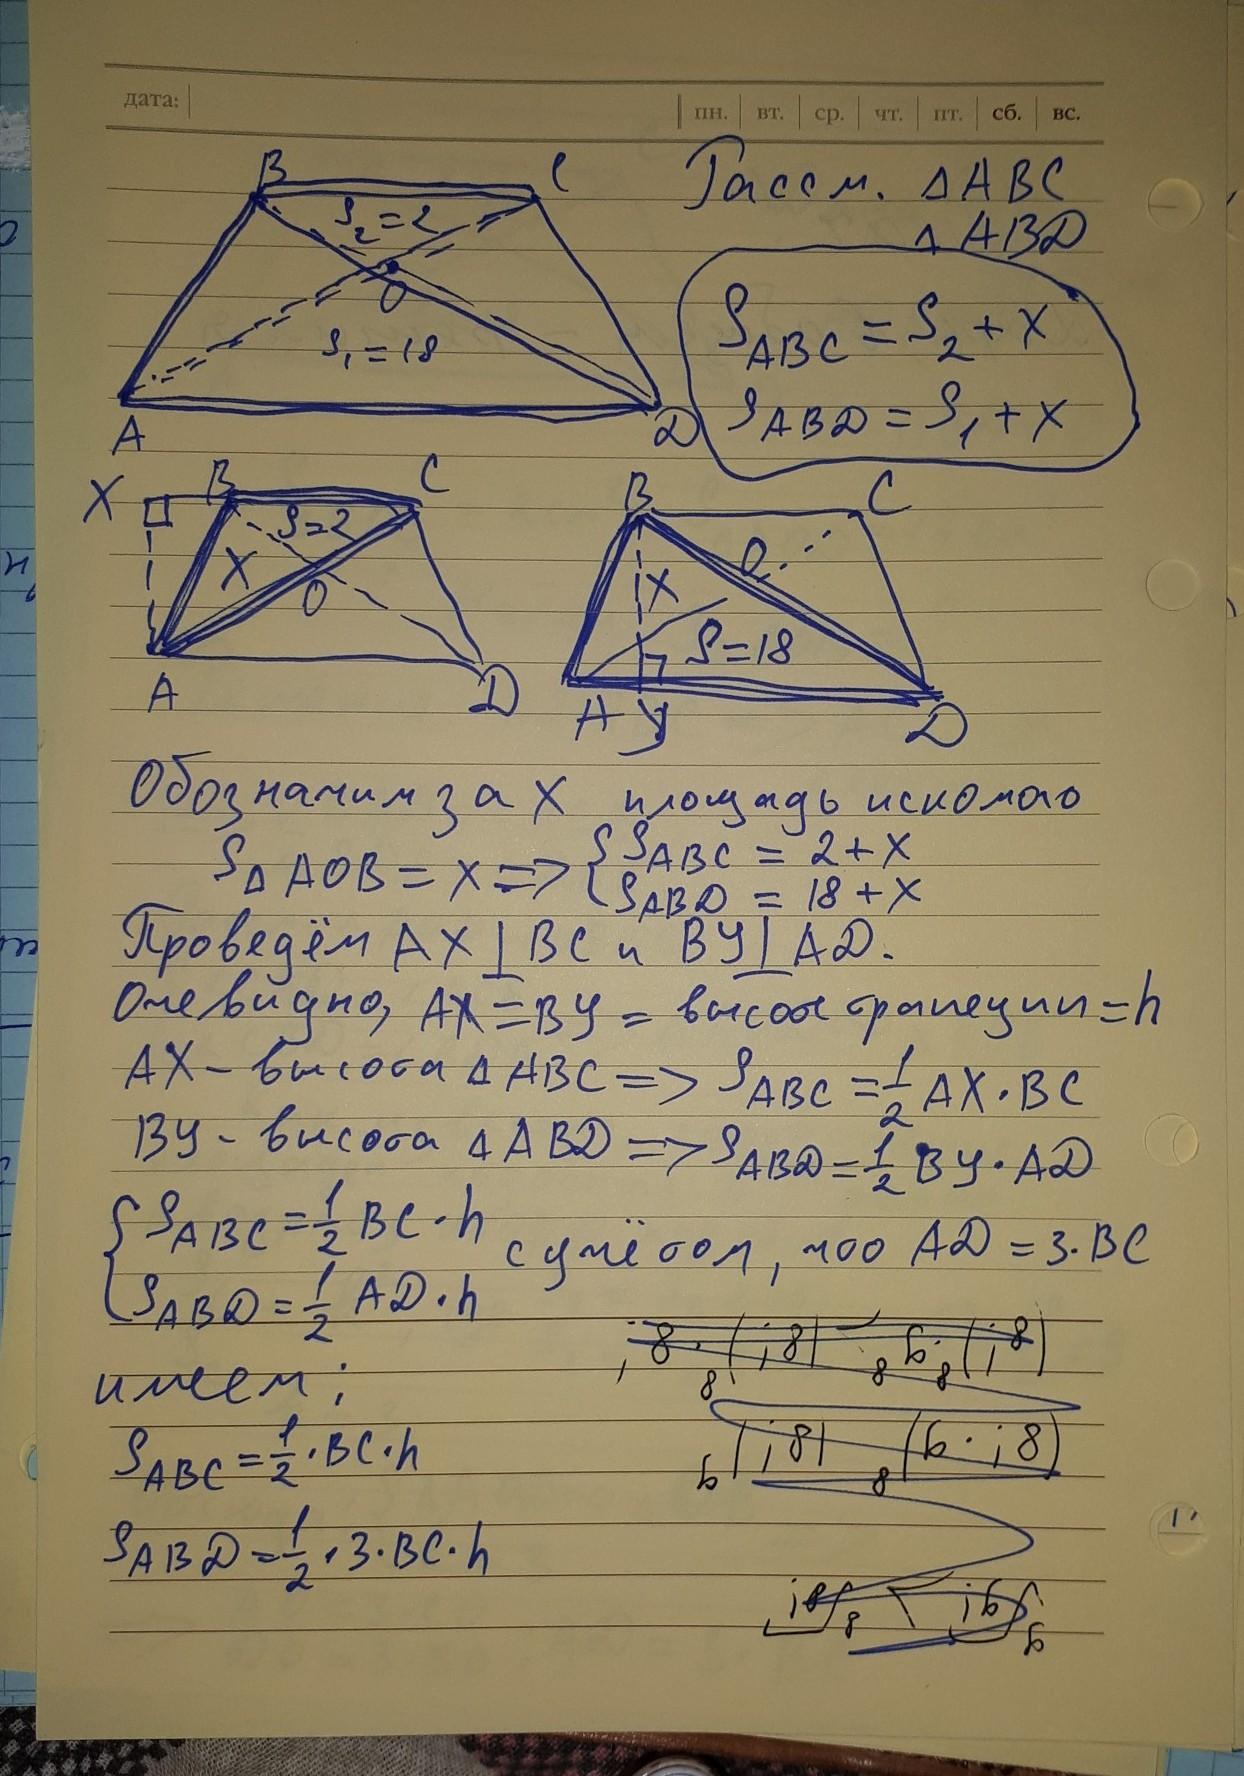 дата:
пн. вт. ср. чт. пт. сб. вс.
B C
S₂ = 2
O
S₁ = 18
A D
Рассм. △ABC
△ABD
S_ABC = S₂ + x
S_ABD = S₁ + x
X B C
S=2
X
O
A D
B C
O
X
S=18
A У D
Обозначим за X площадь искомого
S△AOB = x => { S_ABC = 2 + x
S_ABD = 18 + x
Проведём AX ⊥ BC и BУ ⊥ AD.
Очевидно, AX = BУ = высоте трапеции = h
AX – высота △ABC => S_ABC = 1/2 AX · BC
BУ - высота △ABD => S_ABD = 1/2 BУ · AD
{ S_ABC = 1/2 BC · h
S_ABD = 1/2 AD · h
с учётом, что AD = 3 · BC
имеем:
S_ABC = 1/2 · BC · h
S_ABD = 1/2 · 3 · BC · h